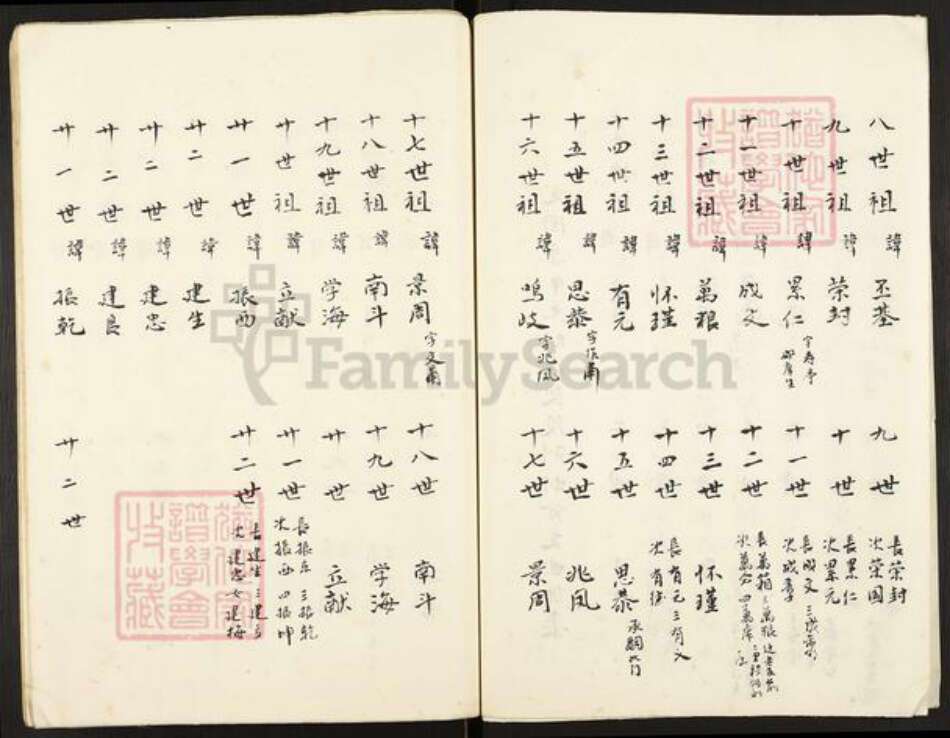 八世祖 諱 丕基
九世祖 諱 荣封
十世祖 諱 累仁 字寿亭 邵庠生
十一世祖 諱 成文
十二世祖 諱 萬粮
十三世祖 諱 怀瑾
十四世祖 諱 有元
十五世祖 諱 思恭
十六世祖 諱 鸣岐 字兆凤
九世 長荣封 次荣国
十世 長累仁 次累元
十一世 長成文 次成章
十二世 長萬箱
十三世 怀瑾
十四世 長有元 三有文 次有
十五世 思恭 承嗣
十六世 兆凤
十七世 景周
十七世祖 諱 景周 字文
十八世祖 諱 南斗
十九世祖 諱 学海
廿世祖 諱 立献
廿一世 諱 振西
廿二世 諱 建生
廿二世 諱 建忠
廿二世 諱 建良
廿一世 諱 振乾
十八世 南斗
十九世 学海
廿世 立献
廿一世 長振 三振乾 次振西 四振坤
廿二世 長建生 三建 次建忠 女建梅
廿二世
FamilySearch